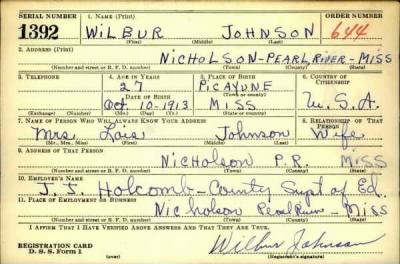 SERIAL NUMBER 1. NAME (Print) ORDER NUMBER
1392 WILBUR JOHNSON 644
(First) (Middle) (Last)
2. ADDRESS (Print)
NICHOLSON-PEARL RIVER-MISS
(Number and street or R. F. D. number) (Town) (County) (State)
3. TELEPHONE 4. AGE IN YEARS 5. PLACE OF BIRTH 6. COUNTRY OF CITIZENSHIP
27 PICAYUNE
DATE OF BIRTH (Town or county)
Oct. 10-1913 MISS U.S.A.
(Exchange) (Number) (Mo.) (Day) (Yr.) (State or country)
7. NAME OF PERSON WHO WILL ALWAYS KNOW YOUR ADDRESS 8. RELATIONSHIP OF THAT PERSON
Mrs. Lois Johnson Wife
(Mr., Mrs., Miss) (First) (Middle) (Last)
9. ADDRESS OF THAT PERSON
Nicholson P.R. MISS
(Number and street or R. F. D. number) (Town) (County) (State)
10. EMPLOYER'S NAME
Holcomb-County Supt of Ed.
11. PLACE OF EMPLOYMENT OR BUSINESS
Nicholson Pearl River - Miss
(Number and street or R. F. D. number) (Town) (County) (State)
I AFFIRM THAT I HAVE VERIFIED ABOVE ANSWERS AND THAT THEY ARE TRUE.
REGISTRATION CARD
D. S. S. Form 1
Wilbur Johnson
(Registrant's signature)